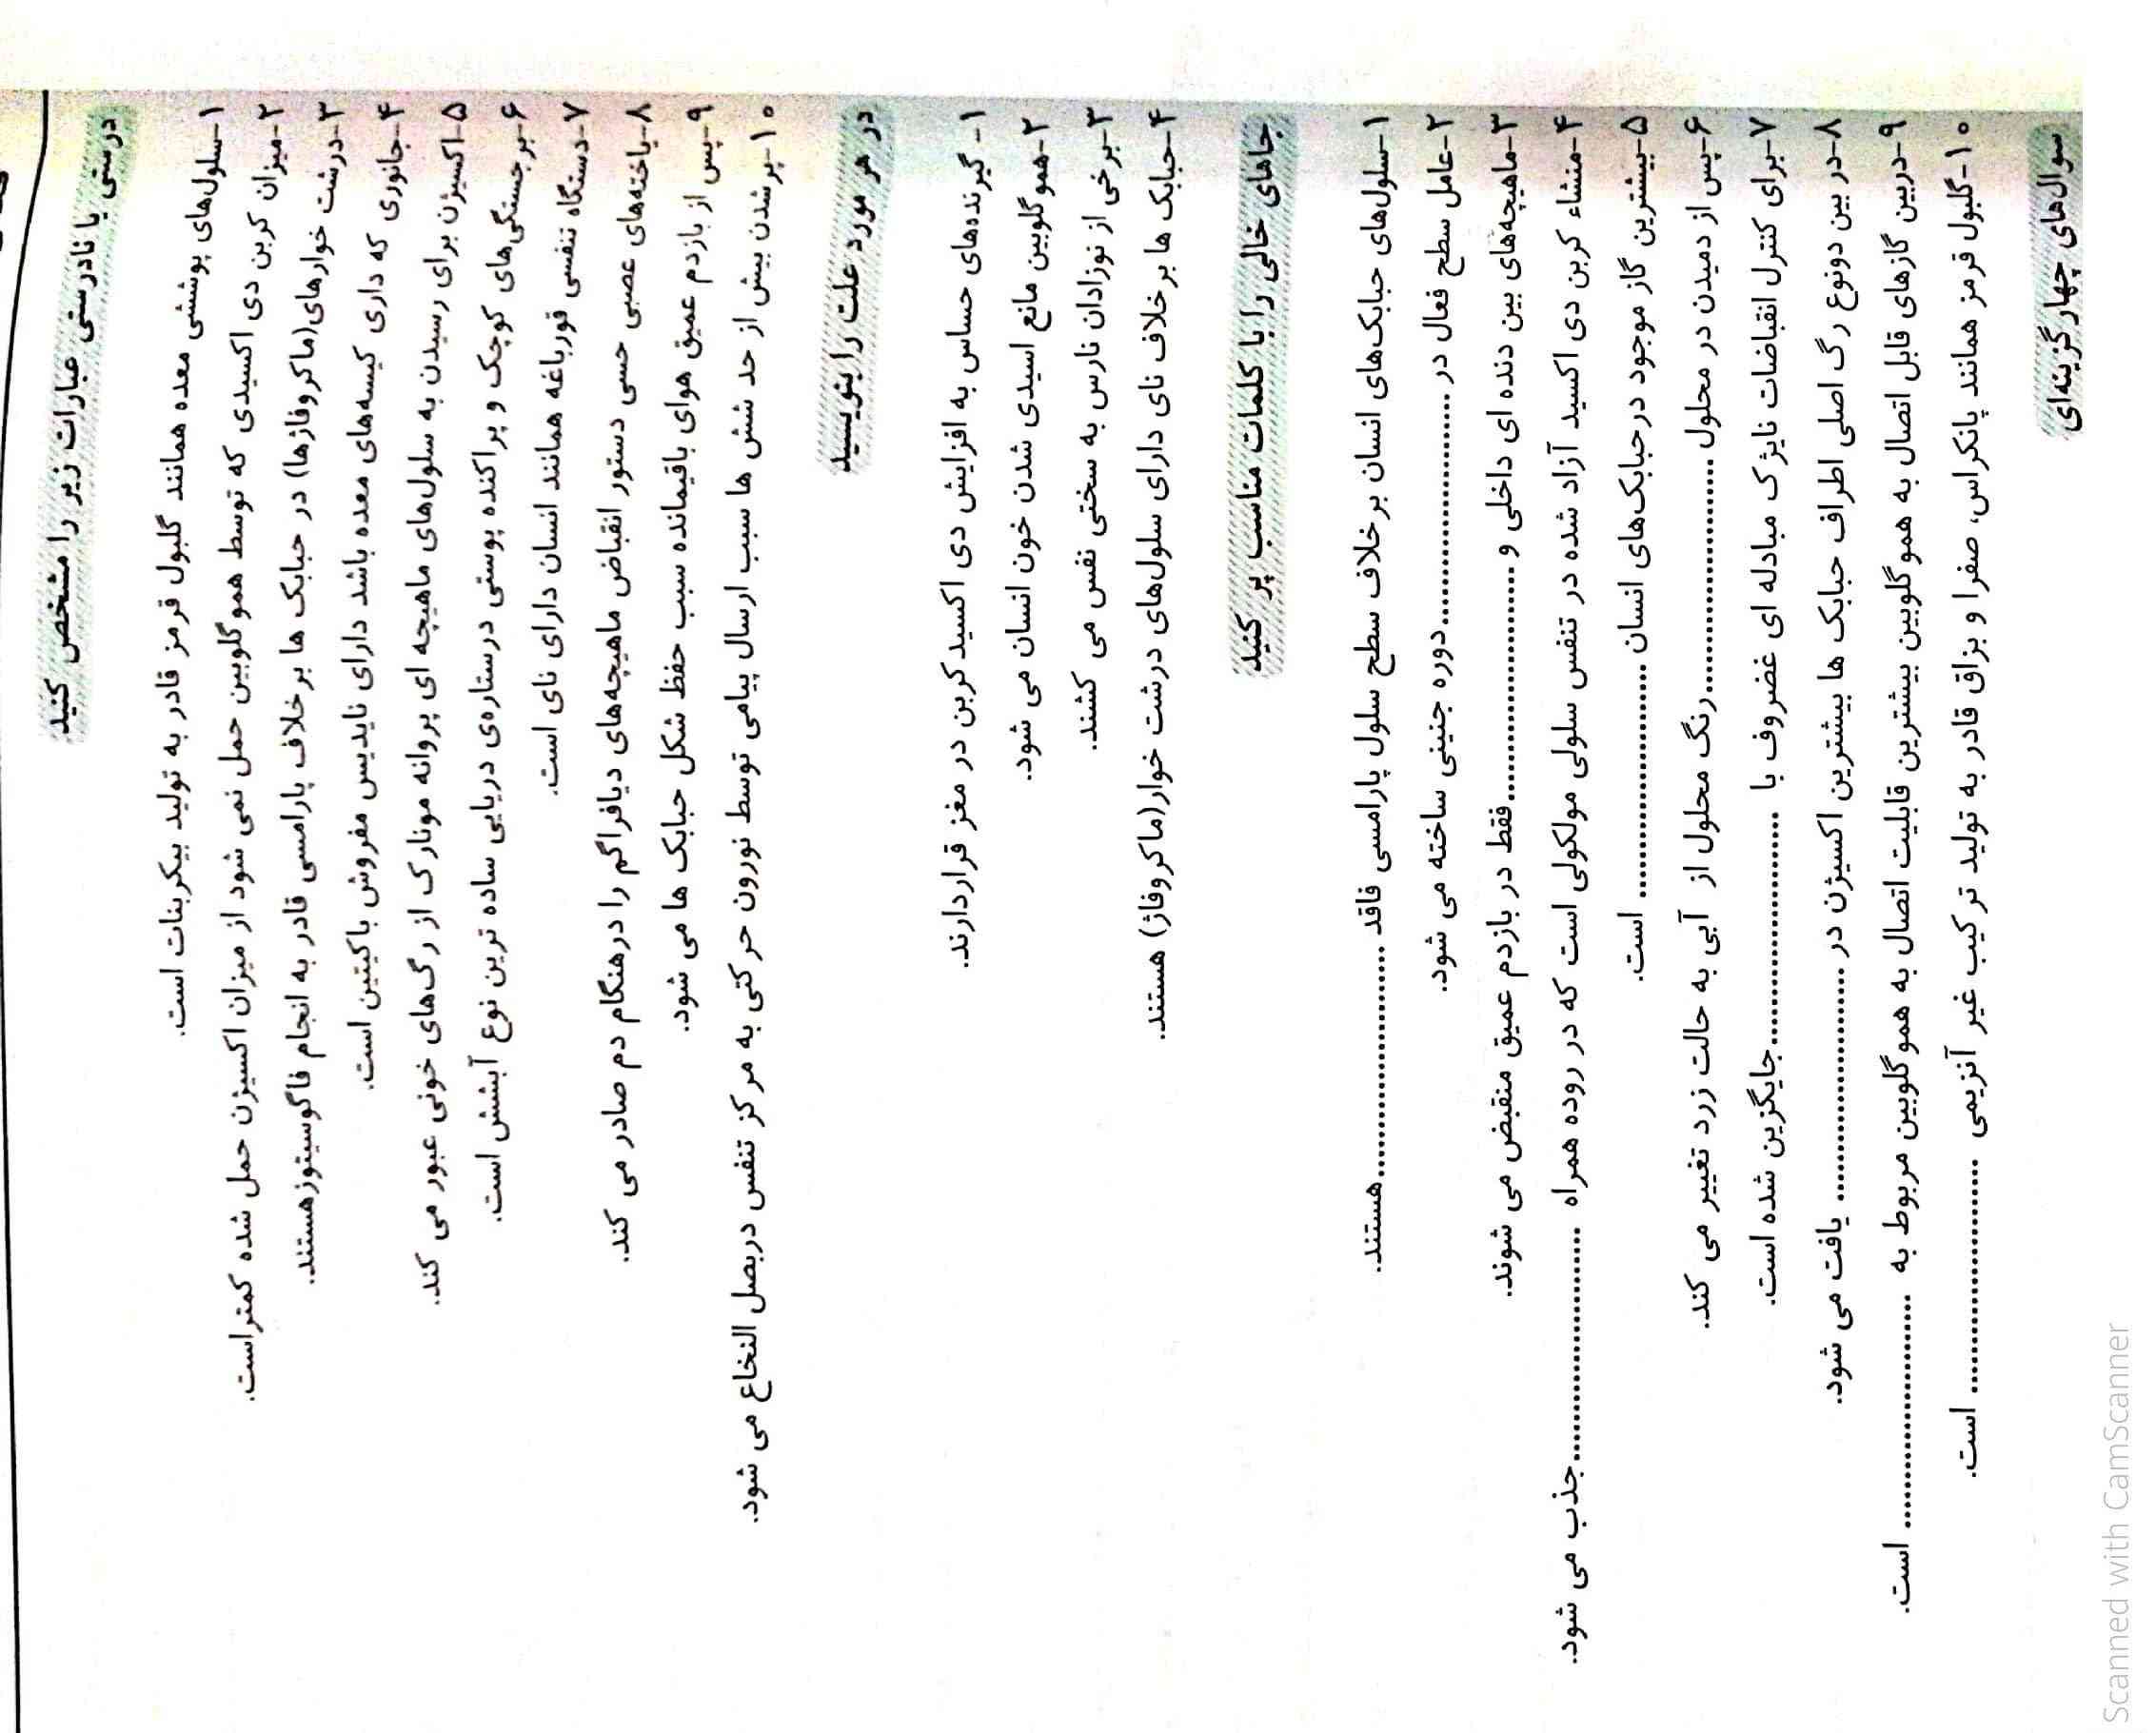 درستی یا نادرستی عبارات زیر را مشخص کنید
۱-سلول‌های پوششی معده همانند گلبول قرمز قادر به تولید بیکربنات است.
۲-میزان کربن دی اکسیدی که توسط هموگلوبین حمل نمی شود از میزان اکسیژن حمل شده کمتراست.
۳-درشت خوارهای(ماکروفاژها) در حبابک ها برخلاف پارامسی قادر به انجام فاگوسیتوزهستند.
۴-جانوری که داری کیسه‌های معده باشد دارای نایدیس مفروش باکیتین است.
۵-اکسیژن برای رسیدن به سلول‌های ماهیچه ای پروانه مونارک از رگ‌های خونی عبور می کند.
۶-برجستگی‌های کوچک و پراکنده پوستی درستاره‌ی دریایی ساده ترین نوع آبشش است.
۷-دستگاه تنفسی قورباغه همانند انسان دارای نای است.
۸-یاخته‌های عصبی حسی دستور انقباض ماهیچه‌های دیافراگم را درهنگام دم صادر می کند.
۹-پس از بازدم عمیق هوای باقیمانده سبب حفظ شکل حبابک ها می شود.
۱۰-پرشدن بیش از حد شش ها سبب ارسال پیامی توسط نورون حرکتی به مرکز تنفس دربصل النخاع می شود.
در هر مورد علت را بنویسید
۱- گیرنده‌های حساس به افزایش دی اکسیدکربن در مغز قراردارند.
۲-هموگلوبین مانع اسیدی شدن خون انسان می شود.
۳-برخی از نوزادان نارس به سختی نفس می کشند.
۴-حبابک ها برخلاف نای دارای سلول‌های درشت خوار(ماکروفاژ) هستند.
جاهای خالی را با کلمات مناسب پر کنید
۱-سلول‌های حبابک‌های انسان برخلاف سطح سلول پارامسی فاقد ..............................هستند.
۲-عامل سطح فعال در ..............................دوره جنینی ساخته می شود.
۳-ماهیچه‌های بین دنده ای داخلی و ..............................فقط در بازدم عمیق منقبض می شوند.
۴-منشاء کربن دی اکسید آزاد شده در تنفس سلولی مولکولی است که در روده همراه ..............................جذب می شود.
۵-بیشترین گاز موجود درحبابک‌های انسان .............................. است.
۶-پس از دمیدن در محلول ..............................رنگ محلول از آبی به حالت زرد تغییر می کند.
۷-برای کنترل انقباضات نایژک مبادله ای غضروف با ..............................جایگزین شده است.
۸-در بین دونوع رگ اصلی اطراف حبابک ها بیشترین اکسیژن در .............................. یافت می شود.
۹-دربین گازهای قابل اتصال به هموگلوبین بیشترین قابلیت اتصال به هموگلوبین مربوط به .............................. است.
۱۰-گلبول قرمز همانند پانکراس، صفرا و بزاق قادر به تولید ترکیب غیر آنزیمی .............................. است.
سوال‌های چهارگزینه‌ای
Scanned with CamScanner